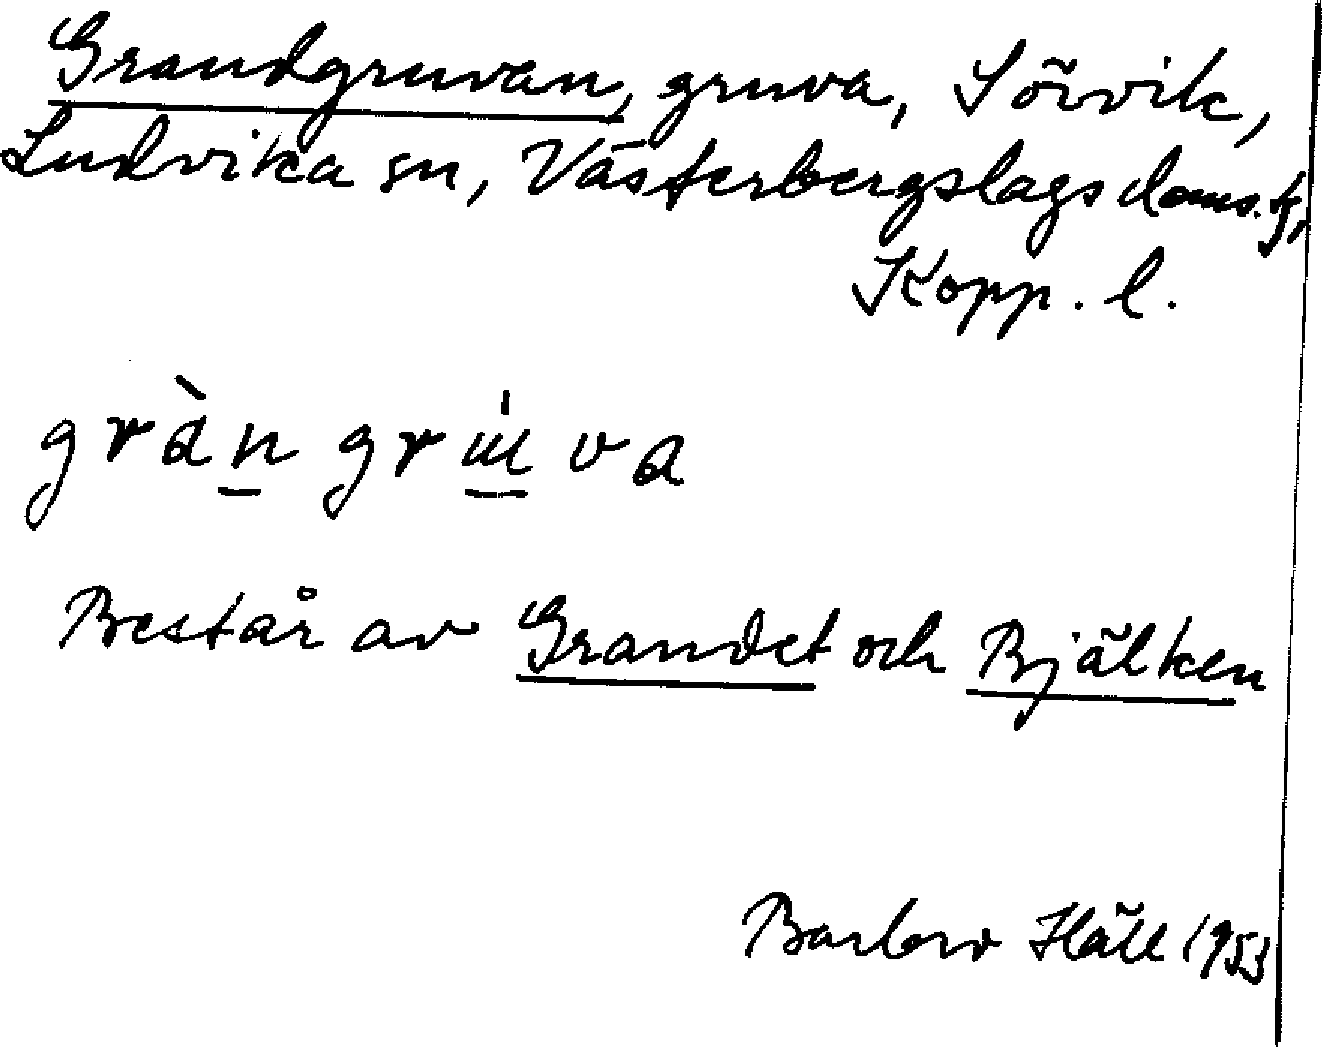 Grandgruvan, gruva, Sörvik,
Ludvika sn, Västerbergslags doms.
Kopp. l.
gràn grúva
Består av Grandet och Bjälken
Barbro Häll 1953